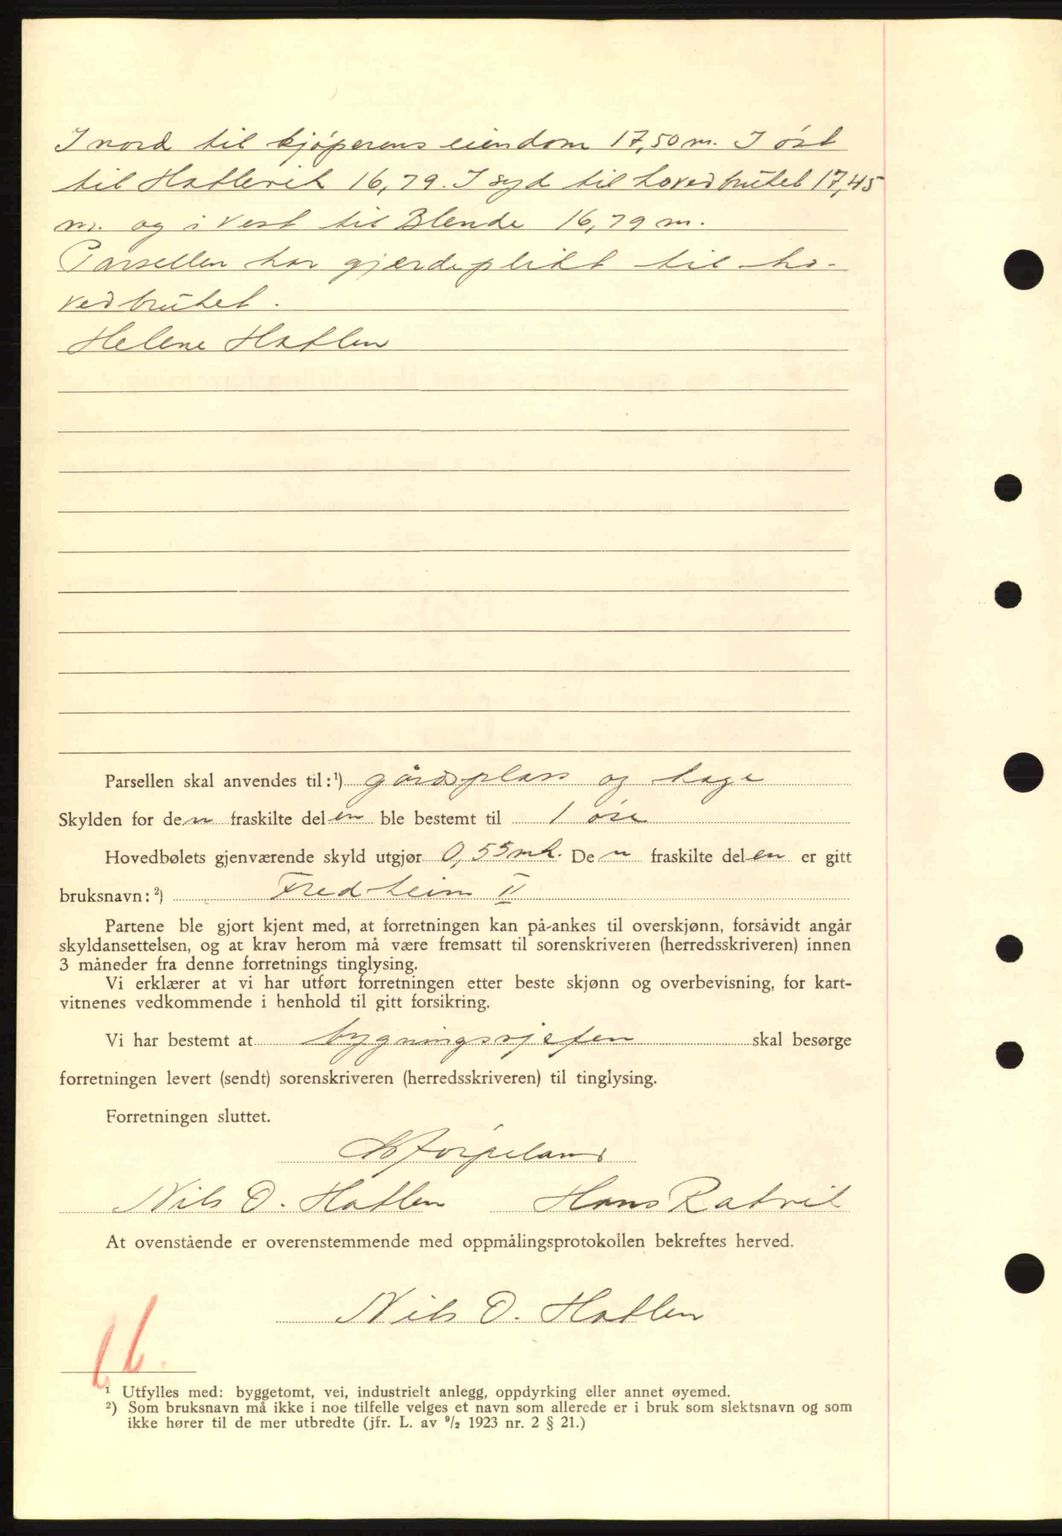 I nord til kjøperens eiendom 17,50 m. I øst
til Hatlevik 16,79. I syd til hovedbruket 17,45
m. og i vest til Blende 16,79 m.
Parsellen har gjerdeplikt til ho-
vedbruket.
Helene Hatlen
Parsellen skal anvendes til:¹) gårdsplass og hage
Skylden for den fraskilte delen ble bestemt til 1 øre
Hovedbølets gjenværende skyld utgjør 0,55 mk. Den fraskilte delen er gitt
bruksnavn: ²) Fredheim II
Partene ble gjort kjent med, at forretningen kan på-ankes til overskjønn, forsåvidt angår
skyldansettelsen, og at krav herom må være fremsatt til sorenskriveren (herredsskriveren) innen
3 måneder fra denne forretnings tinglysing.
Vi erklærer at vi har utført forretningen etter beste skjønn og overbevisning, for kart-
vitnenes vedkommende i henhold til gitt forsikring.
Vi har bestemt at bygningssjefen skal besørge
forretningen levert (sendt) sorenskriveren (herredsskriveren) til tinglysing.
Forretningen sluttet.
Nils O. Hatlen Hans Ratvik
At ovenstående er overenstemmende med oppmålingsprotokollen bekreftes herved.
Nils O. Hatlen
¹ Utfylles med: byggetomt, vei, industrielt anlegg, oppdyrking eller annet øyemed.
²) Som bruksnavn må ikke i noe tilfelle velges et navn som allerede er i bruk som slektsnavn og som
ikke hører til de mer utbredte (jfr. L. av ⁹/₂ 1923 nr. 2 § 21.)